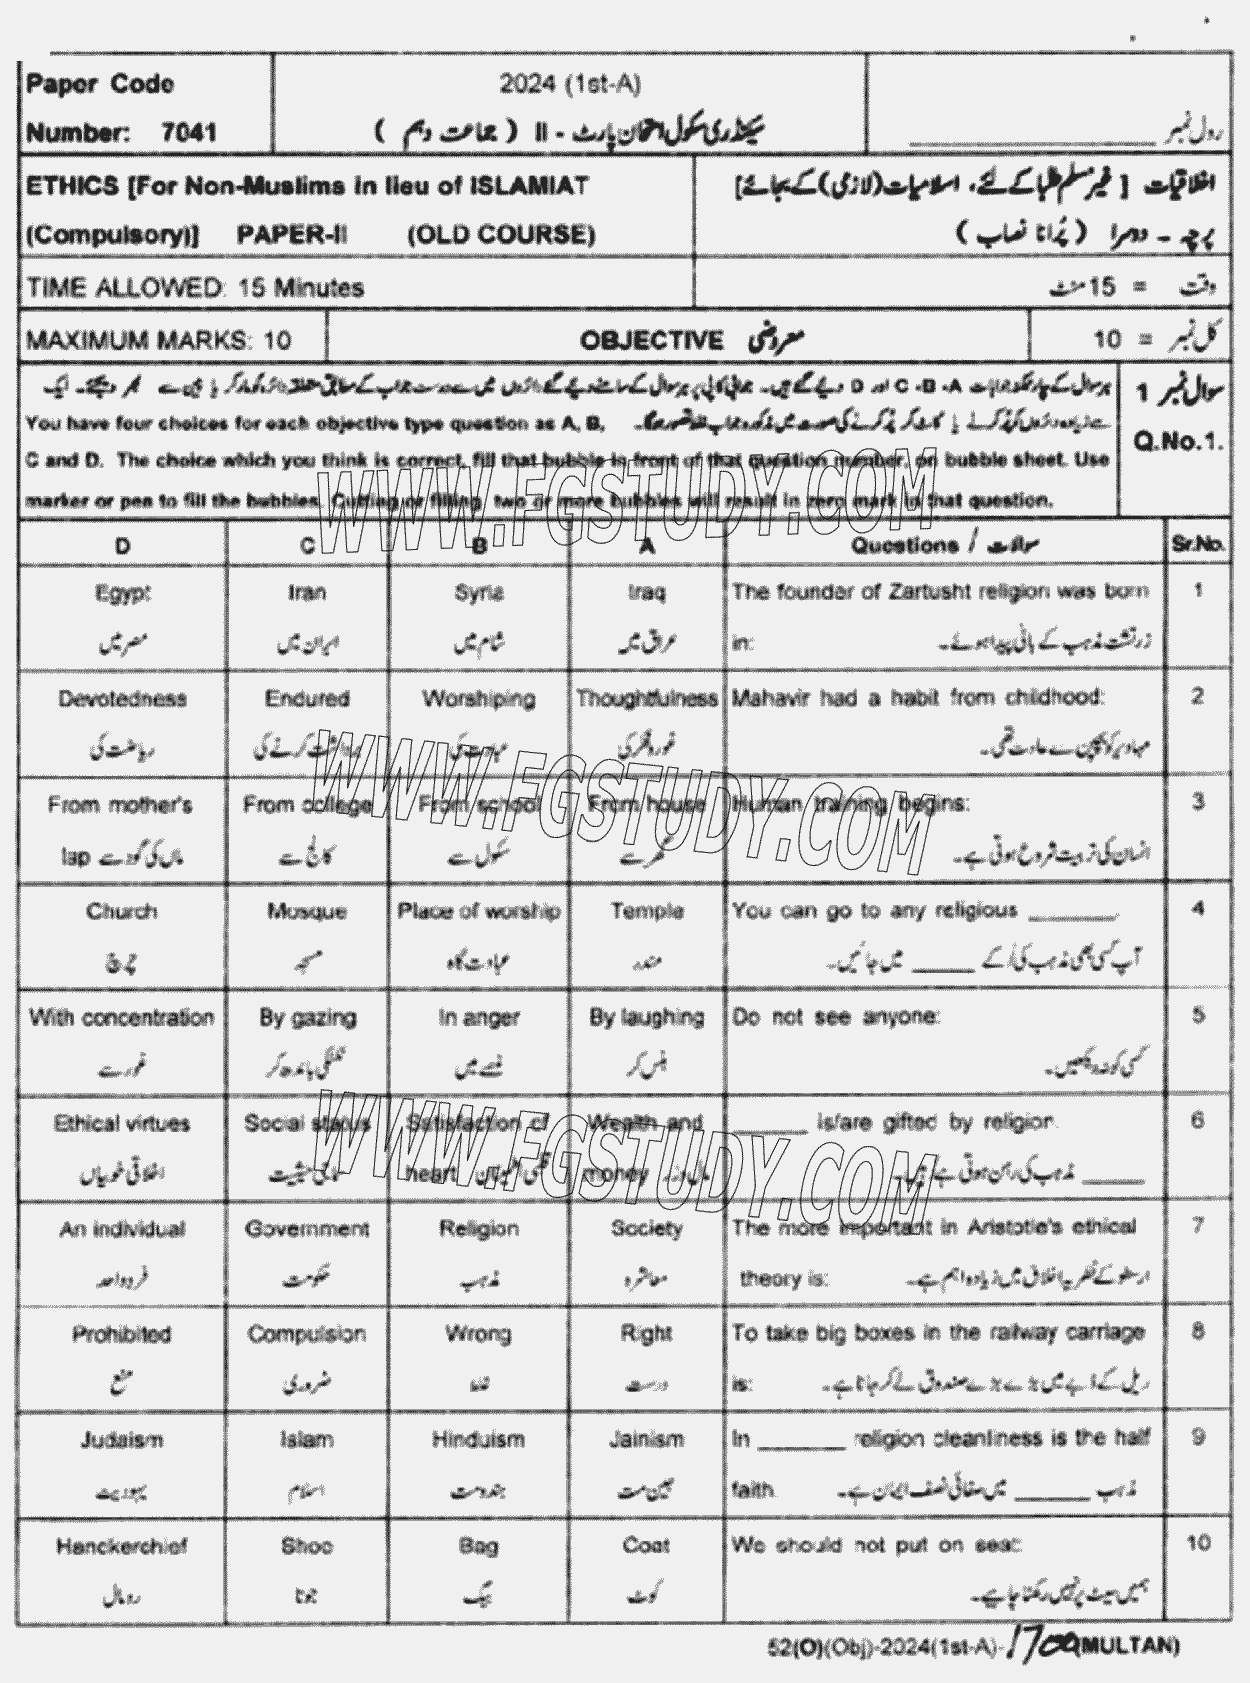 Paper Code
Number: 7041
2024 (1st-A)
سیکنڈری سکول امتحان پارٹ - II ( جماعت دہم )
رول نمبر ____________
ETHICS [For Non-Muslims in lieu of ISLAMIAT
(Compulsory)] PAPER-II (OLD COURSE)
اخلاقیات [ غیر مسلم طلبا کے لئے، اسلامیات (لازمی) کے بجائے]
پرچہ - دوسرا ( پُرانا نصاب )
TIME ALLOWED: 15 Minutes
وقت = 15 منٹ
MAXIMUM MARKS: 10
OBJECTIVE معروضی
کل نمبر = 10
سوال نمبر 1
Q.No.1.
ہر سوال کے چار ممکنہ جوابات A، B، C اور D دیے گئے ہیں۔ جوابی کاپی پر ہر سوال کے سامنے دیے گئے دائروں میں سے درست جواب کے مطابق متعلقہ دائرہ کو مارکر یا پین سے بھر دیجئے۔ ایک
You have four choices for each objective type question as A, B, سے زیادہ دائروں کو پُر کرنے یا کاٹ کر پُر کرنے کی صورت میں مذکورہ جواب غلط تصور ہوگا۔
C and D. The choice which you think is correct, fill that bubble in front of that question number, on bubble sheet. Use
marker or pen to fill the bubbles. Cutting or filling two or more bubbles will result in zero mark in that question.
D C B A Questions / سوالات Sr.No.
Egypt Iran Syria Iraq The founder of Zartusht religion was born 1
مصر میں ایران میں شام میں عراق میں in: زرتشت مذہب کے بانی پیدا ہوئے۔
Devotedness Endured Worshiping Thoughtfulness Mahavir had a habit from childhood: 2
ریاضت کی برداشت کرنے کی عبادت کی غوروفکر کی مہاویر کو بچپن سے عادت تھی۔
From mother's From college From school From house Human training begins: 3
lap ماں کی گود سے کالج سے سکول سے گھر سے انسان کی تربیت شروع ہوتی ہے۔
Church Mosque Place of worship Temple You can go to any religious ________. 4
چرچ مسجد عبادت گاہ مندر آپ کسی بھی مذہب کی / کے _____ میں جائیں۔
With concentration By gazing In anger By laughing Do not see anyone: 5
غور سے ٹکٹکی باندھ کر غصے میں ہنس کر کسی کو نہ دیکھیں۔
Ethical virtues Social status Satisfaction of Wealth and ______ is/are gifted by religion. 6
اخلاقی خوبیاں سماجی حیثیت heart قلبی اطمینان money مال و زر _____ مذہب کی دین ہوتی ہے / ہیں۔
An individual Government Religion Society The more important in Aristotle's ethical 7
فرد واحد حکومت مذہب معاشرہ theory is: ارسطو کے نظریہ اخلاق میں زیادہ اہم ہے۔
Prohibited Compulsion Wrong Right To take big boxes in the railway carriage 8
منع ضروری غلط درست is: ریل کے ڈبے میں بڑے بڑے صندوق لے کر جانا ہے۔
Judaism Islam Hinduism Jainism In _______ religion cleanliness is the half 9
یہودیت اسلام ہندومت جین مت faith. مذہب ______ میں صفائی نصف ایمان ہے۔
Hanckerchief Shoe Bag Coat We should not put on seat: 10
رومال جوتا بیگ کوٹ ہمیں سیٹ پر نہیں رکھنا چاہیے۔
52(O)(Obj)-2024(1st-A)-1700 (MULTAN)
WWW.FGSTUDY.COM
WWW.FGSTUDY.COM
WWW.FGSTUDY.COM